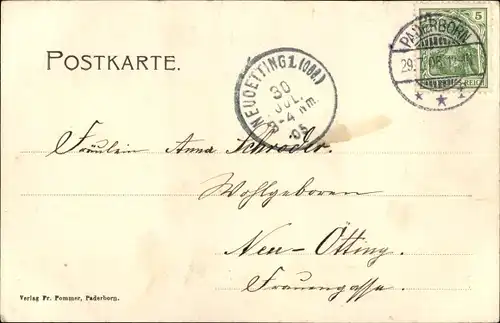 POSTKARTE.
5
REICH
PADERBORN
29.
* * 1
NEUOETTING 1. (OBB.)
30
JUL.
3-4 Nm.
05
Fräulein Anna Schrodlr.
Wohlgeboren
Neu-Ötting.
Frauengasse.
Verlag Fr. Pommer, Paderborn.